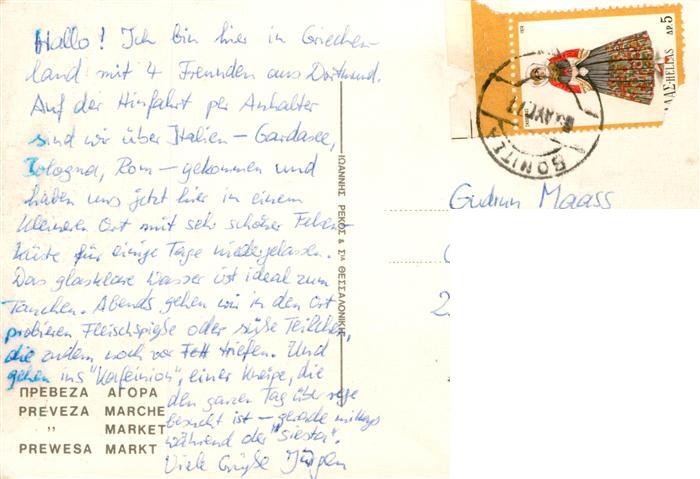 Hallo! Ich bin hier in Griechen-
land mit 4 Freunden aus Dortmund.
Auf der Hinfahrt per Anhalter
sind wir über Italien – Gardasee,
Bologna, Rom – gekommen und
haben uns jetzt hier in einem
kleineren Ort mit sehr schöner Felsen-
küste für einige Tage niedergelassen.
Das glasklare Wasser ist ideal zum
Tauchen. Abends gehen wir in den Ort
probieren Fleischspieße oder süße Teilchen,
die zudem noch vor Fett triefen. Und
gehen ins "Kafeinion", einer Kneipe, die
den ganzen Tag über rege
besucht ist – gerade mittags
während der "Siesta".
Viele Grüße Jürgen
ΠΡΕΒΕΖΑ ΑΓΟΡΑ
PREVEZA MARCHE
" MARKET
PREWESA MARKT
ΙΩΑΝΝΗΣ ΡΕΚΟΣ & ΣΙΑ ΘΕΣΣΑΛΟΝΙΚΗ
ΔΡ.5
ΛΑΣ-HELLAS
ΑΥΓ 77
BONITZA
Gudrun Maass
2